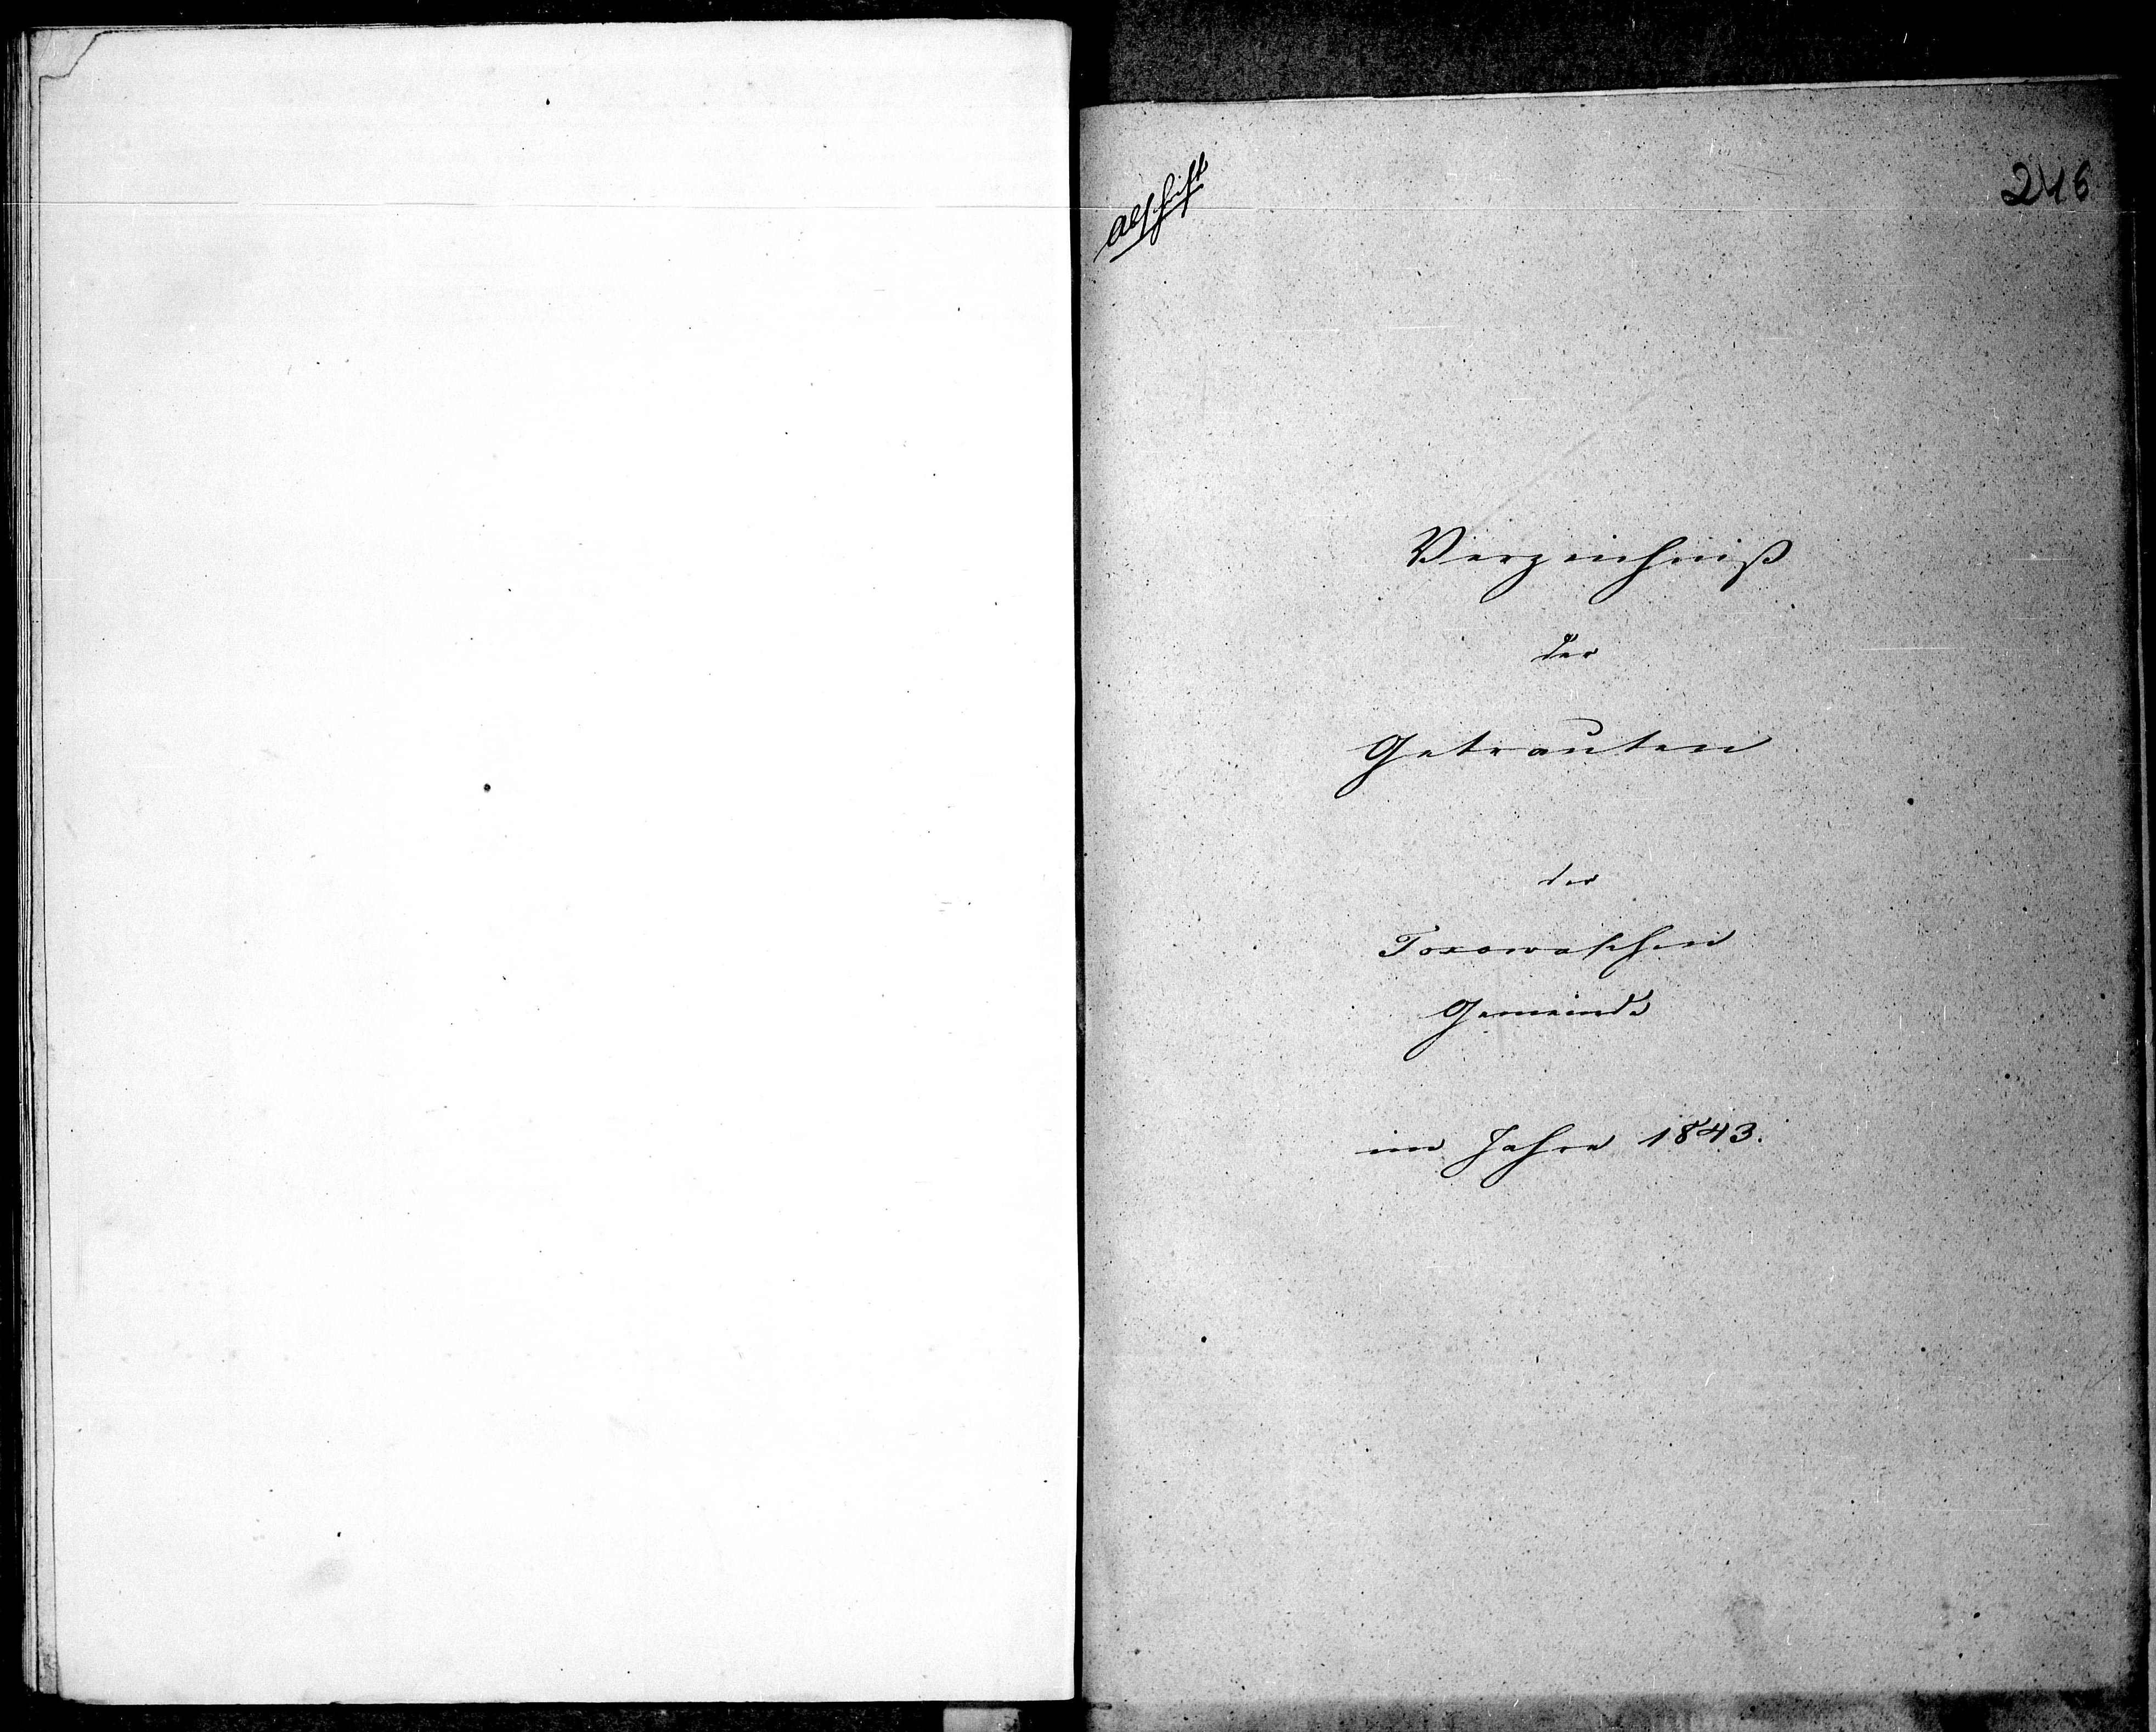 Abschrift
246
Verzeichniß
der
Getrauten
der
Toxowaschen
Gemeinde
im Jahre 1843.